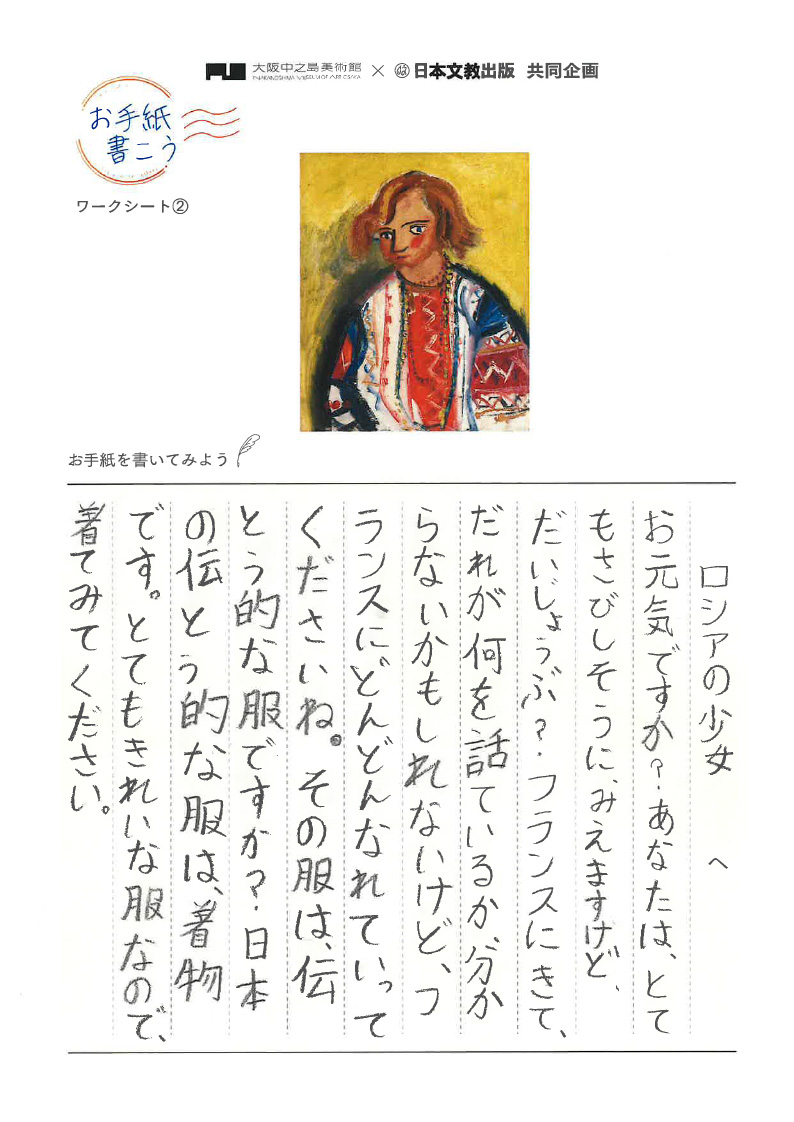 大阪中之島美術館 × 日本文教出版 共同企画
NAKANOSHIMA MUSEUM OF ART, OSAKA
お手紙
書こう
ワークシート②
お手紙を書いてみよう
ロシアの少女 へ
お元気ですか？あなたは、とて
もさびしそうに、みえますけど、
だいじょうぶ？フランスにきて、
だれが何を話ているか、分か
らないかもしれないけど、フ
ランスにどんどんなれていって
くださいね。その服は、伝
とう的な服ですか？日本
の伝とう的な服は、着物
です。とてもきれいな服なので、
着てみてください。